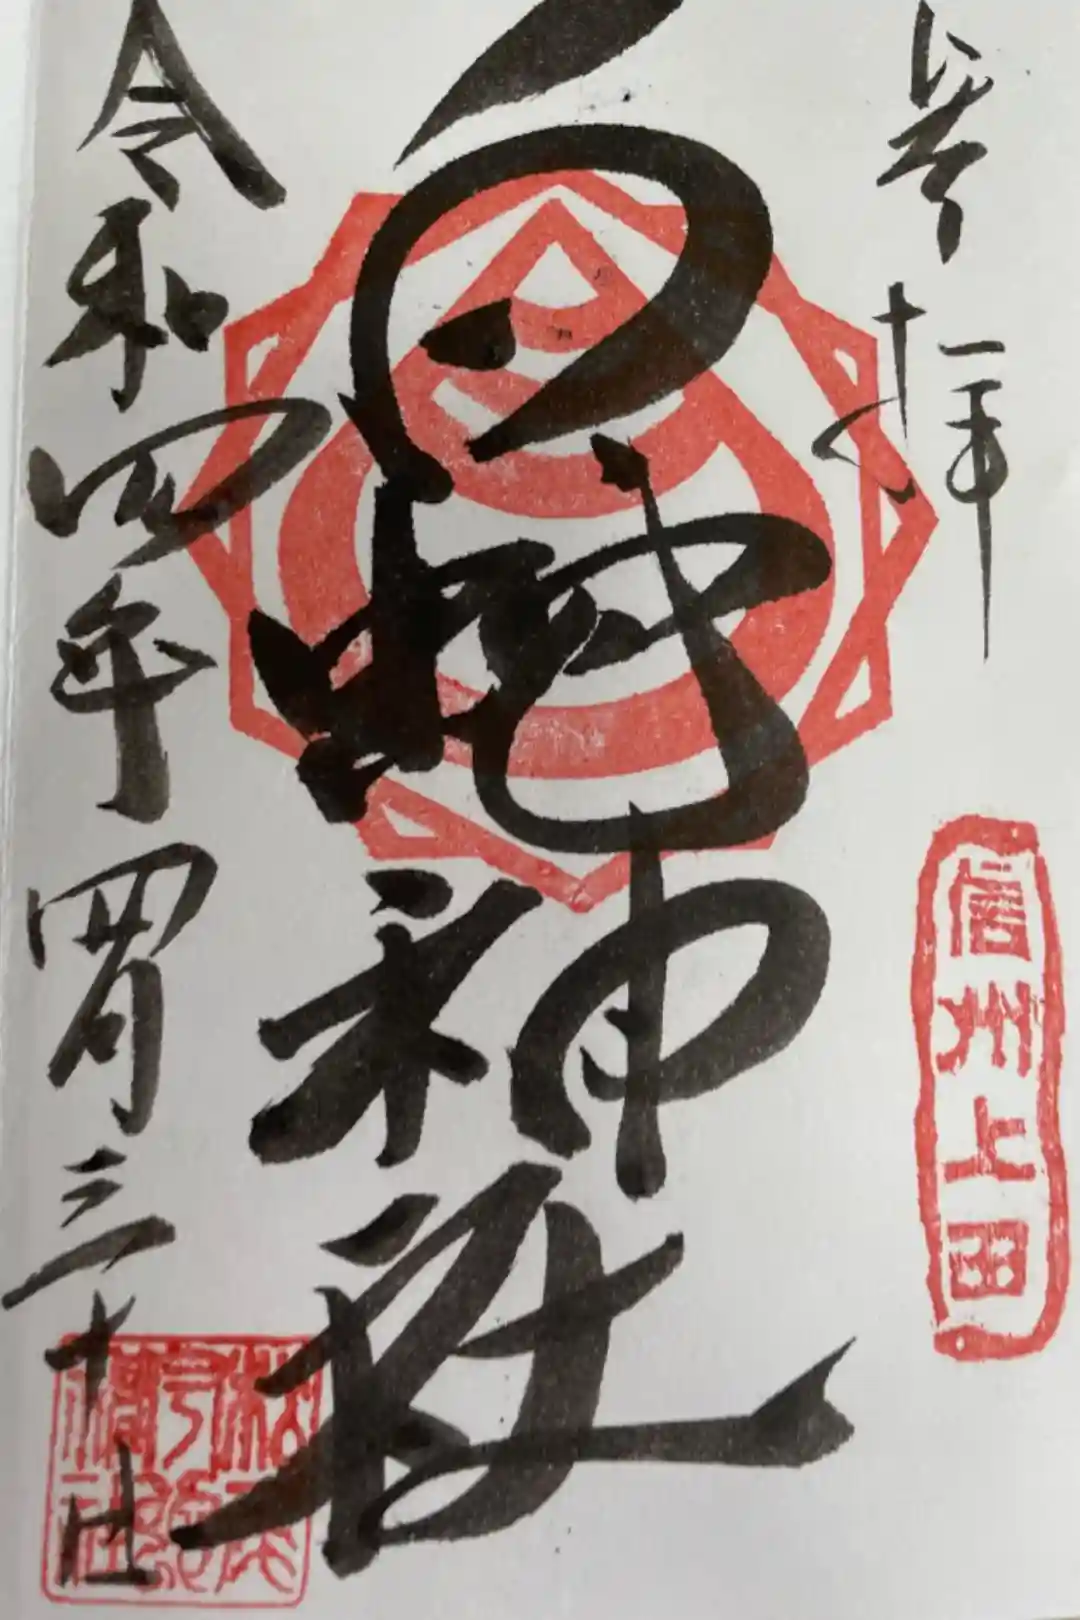 奉拝
信州上田
白蛇神社
令和四年四月三十日